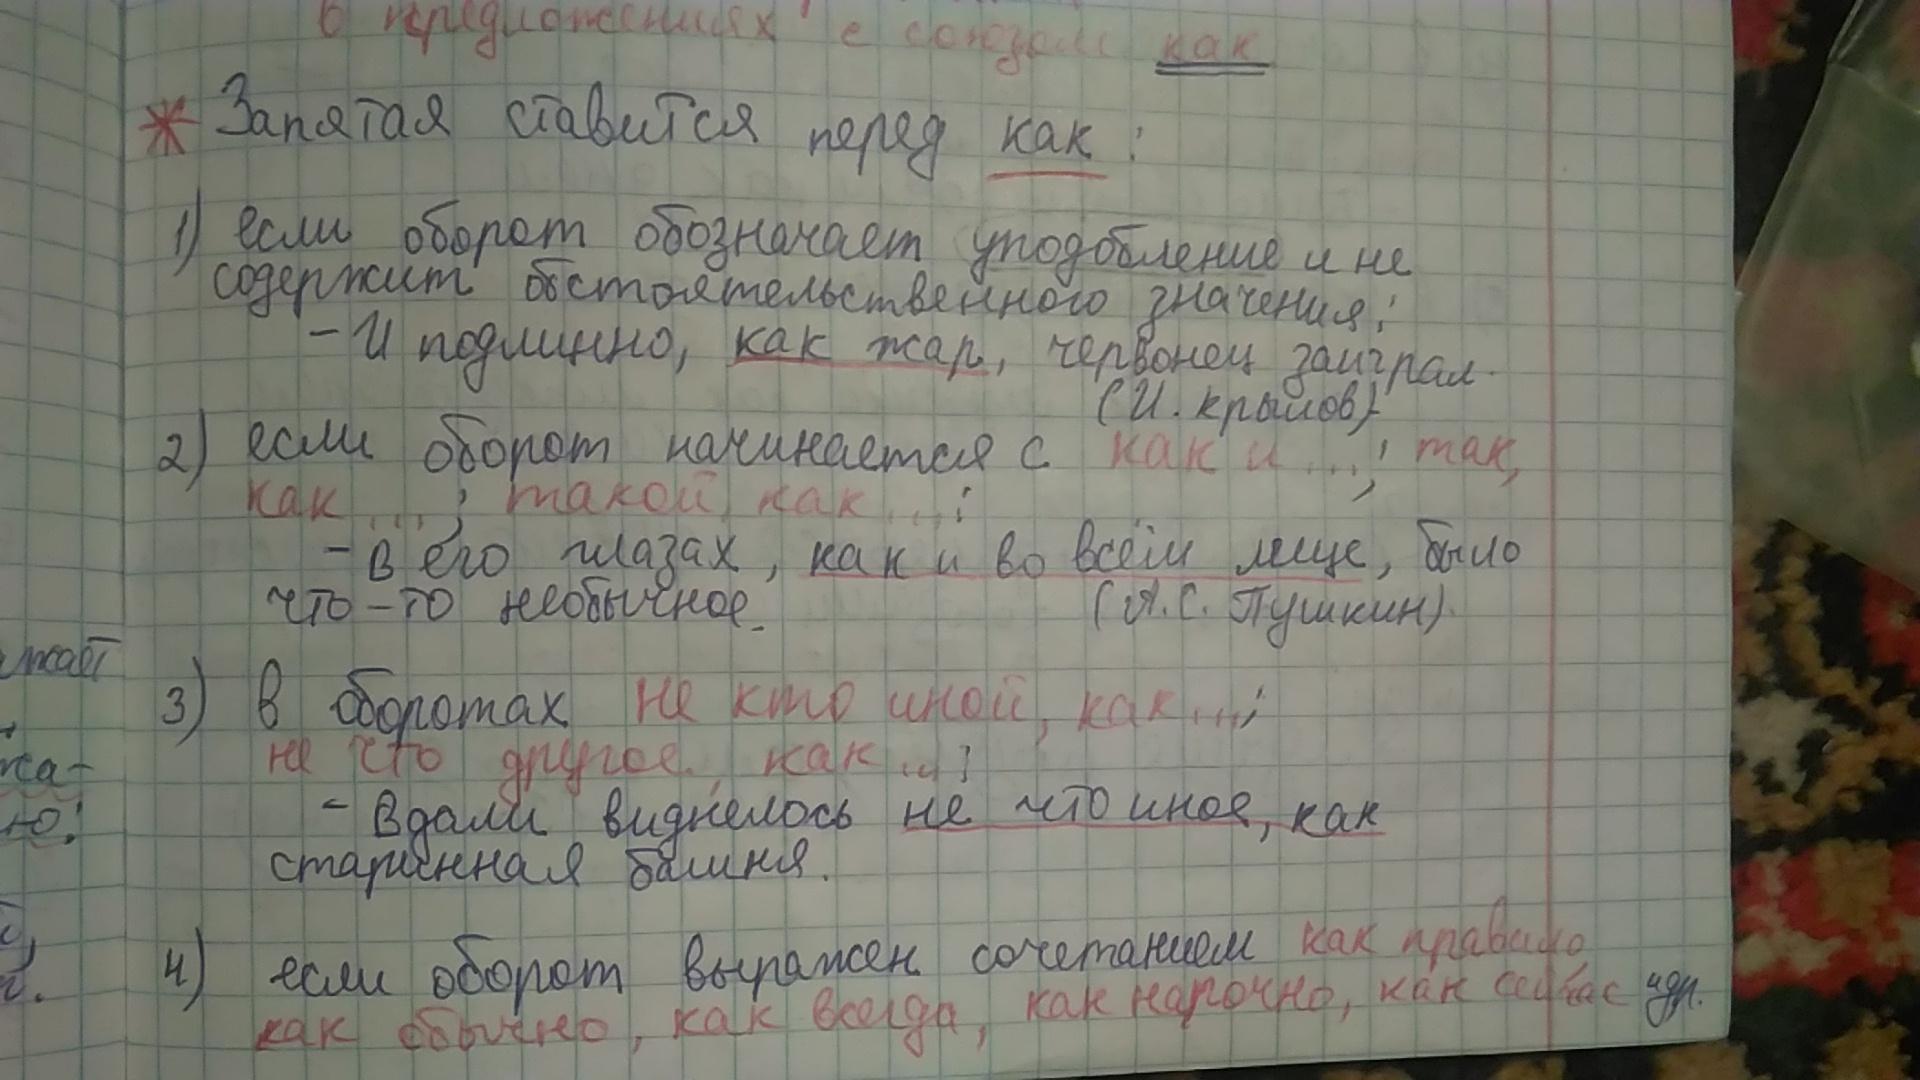 в предложениях с союзом как
* Запятая ставится перед как:
1) если оборот обозначает уподобление и не
содержит обстоятельственного значения:
- И подлинно, как жар, червонец заиграл.
(И. Крылов)
2) если оборот начинается с как и ...; так,
как ...; такой, как ...:
- В его глазах, как и во всём лице, было
что-то необычное. (А.С. Пушкин).
3) в оборотах не кто иной, как ...;
не что другое, как ...:
- Вдали виднелось не что иное, как
старинная башня.
4) если оборот выражен сочетанием как правило
как обычно, как всегда, как нарочно, как сейчас и др.